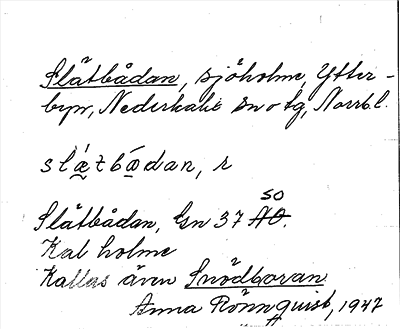 Slätbådan, sjöholme, Ytter-
byn, Nederkalix sn o tg, Norrb. l.
slæ´tbɷ̀dan, r
SO
Slåtbådan, Gn 37 NO.
Kal holme
Kallas även Snödboran
Anna Rönnquist, 1947